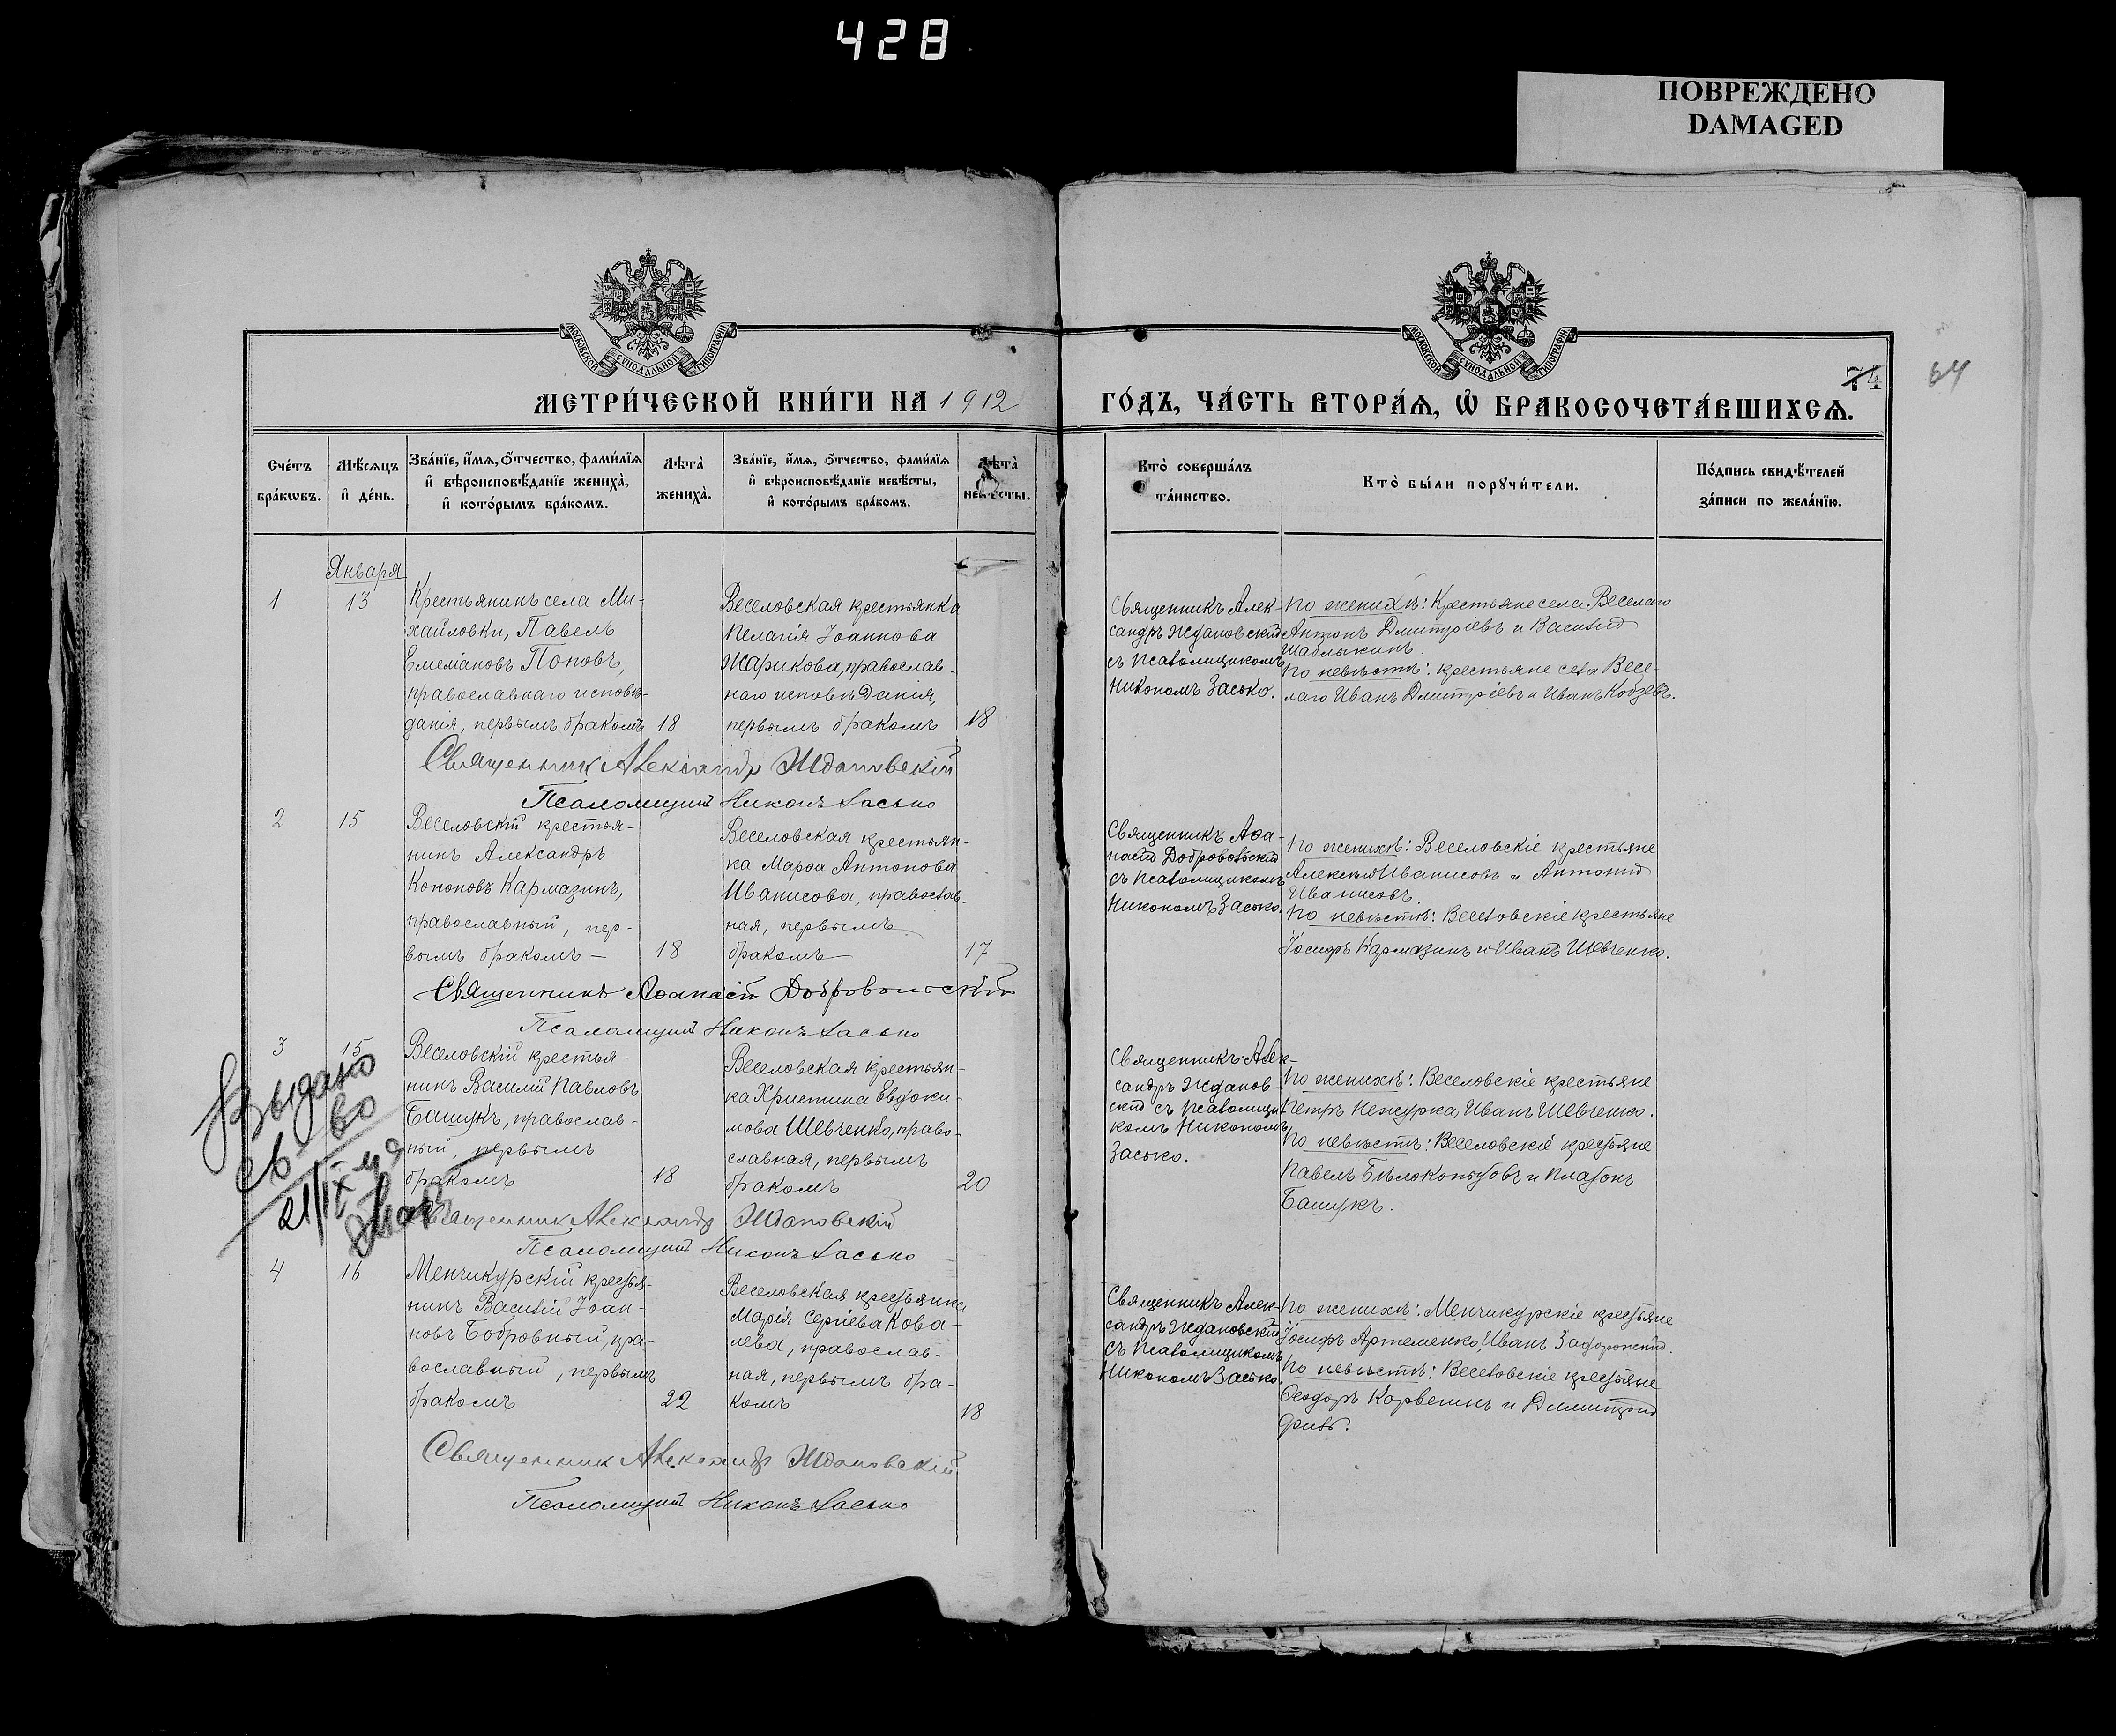 428
ПОВРЕЖДЕНО
DAMAGED
МОСКОВСКОЙ СѴНОДАЛЬНОЙ ТИПОГРАФІИ
МОСКОВСКОЙ СѴНОДАЛЬНОЙ ТИПОГРАФІИ
74
64
МЕТРИ́ЧЕСКОЙ КНИ́ГИ НА 1912
ГО́ДЪ, ЧА́СТЬ ВТОРА́Ѧ, Ѽ БРАКОСОЧЕТА́ВШИХСѦ.
Сче́тъ
бра́кѡвъ.
Мѣ́сѧцъ
и҆ де́нь.
Зва́нїе, и҆́мѧ, о҆́тчество, фами́лїѧ
и҆ вѣроисповѣ́данїе жениха̀,
и҆ кото́рымъ бра́комъ.
Лѣта̀
жениха̀.
Зва́нїе, и҆́мѧ, о҆́тчество, фами́лїѧ
и҆ вѣроисповѣ́данїе невѣ́сты,
и҆ кото́рымъ бра́комъ.
Лѣта̀
невѣ́сты.
Кто̀ соверша́лъ
та́инство.
Кто̀ бы́ли порꙋчи́тели.
По́дпись свидѣ́телей
за́писи по жела́нїю.
Января
1
13
Крестьянинъ села Ми-
хайловки, Павелъ
Емеліановъ Поповъ,
православнаго исповѣ-
данія, первымъ бракомъ
18
Веселовская крестьянка
Пелагія Іоаннова
Жарикова, православ-
наго исповѣданія,
первымъ бракомъ
18
Священникъ Алек-
сандръ Ждановскій
съ псаломщикомъ
Никономъ Засько.
По женихѣ: Крестьяне села Веселаго
Антонъ Дмитріевъ и Василій
Шаблыкинъ.
По невѣстѣ: крестьяне села Весе-
лаго Иванъ Дмитріевъ и Иванъ Кобзевъ.
Священник Александр Ждановскій
Псаломщикъ Никонъ Засько
2
15
Веселовскій крестья-
нинъ Александръ
Кононовъ Кармазинъ,
православный, пер-
вымъ бракомъ —
18
Веселовская крестьян-
ка Марѳа Антонова
Иванисова, православ-
ная, первымъ
бракомъ —
17
Священникъ Аѳа-
насій Добровольскій
съ псаломщикомъ
Никономъ Засько.
По женихѣ: Веселовскіе крестьяне
Алексѣй Иванисовъ и Антоній
Иванисовъ.
По невѣстѣ: Веселовскіе крестьяне
Іосифъ Кармазинъ и Иванъ Шевченко.
Священникъ Аѳанасій Добровольскій
Псаломщикъ Никонъ Засько
3
15
Веселовскій крестья-
нинъ Василій Павловъ
Башукъ, православ-
ный, первымъ
бракомъ
18
Веселовская крестьян-
ка Христина Евдоки-
мова Шевченко, право-
славная, первымъ
бракомъ
20
Священникъ Алек-
сандръ Жданов-
скій съ псаломщи-
комъ Никономъ
Засько.
По женихѣ: Веселовскіе крестьяне
Петръ Кенжурка, Иванъ Шевченко.
По невѣстѣ: Веселовскіе крестьяне
Павелъ Бѣлокопытовъ и Платонъ
Башукъ.
Выдано
св-во
21/IX
Священник Александр Ждановскій
Псаломщикъ Никонъ Засько
4
16
Менчикурскій крестья-
нинъ Василій Іоан-
новъ Бобровный, пра-
вославный, первымъ
бракомъ
22
Веселовская крестьянка
Марія Сергіева Кова-
лева, православ-
ная, первымъ бра-
комъ
18
Священникъ Алек-
сандръ Ждановскій
съ псаломщикомъ
Никономъ Засько.
По женихѣ: Менчикурскіе крестьяне
Іосифъ Артеменко, Иванъ Задорожній.
По невѣстѣ: Веселовскіе крестьяне
Ѳеодоръ Карвенинъ и Димитрій
Священник Александр Ждановскій
Псаломщикъ Никонъ Засько